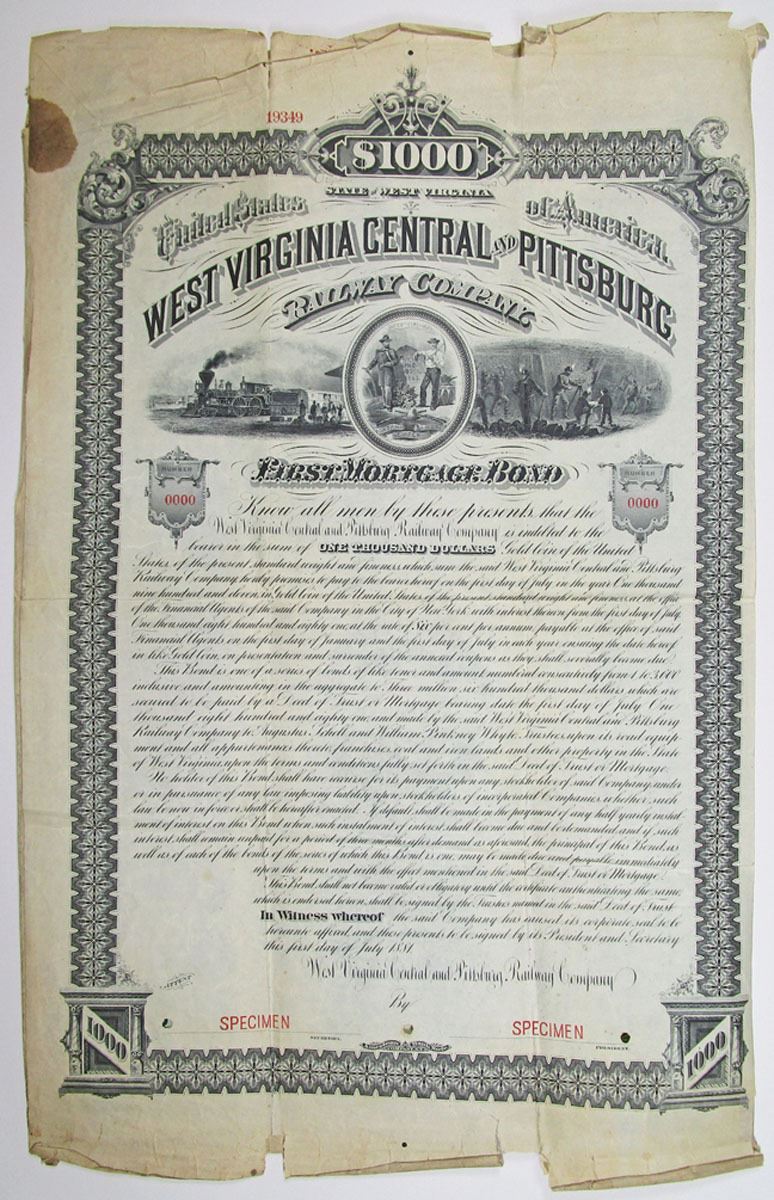 19349
$1000
STATE OF WEST VIRGINIA
United States of America.
WEST VIRGINIA CENTRAL AND PITTSBURG
RAILWAY COMPANY.
FIRST MORTGAGE BOND
NUMBER
0000
NUMBER
0000
Know all men by these presents, that the
West Virginia Central and Pittsburg Railway Company is indebted to the
bearer in the sum of ONE THOUSAND DOLLARS Gold Coin of the United
States of the present standard weight and fineness, which sum the said West Virginia Central and Pittsburg
Railway Company hereby promises to pay to the bearer hereof on the first day of July in the year One thousand
nine hundred and eleven, in Gold Coin of the United States of the present standard weight and fineness at the office
of the Financial Agents of the said Company in the City of New York with interest thereon from the first day of July
One thousand eight hundred and eighty one, at the rate of Six per cent per annum, payable at the office of said
Financial Agents on the first day of January and the first day of July in each year ensuing the date hereof,
in like Gold Coin, on presentation and surrender of the annexed coupons as they shall severally become due.
This Bond is one of a series of bonds of like tenor and amount numbered consecutively from 1 to 3,600
inclusive and amounting in the aggregate to Three million six hundred thousand dollars which are
secured to be paid by a Deed of Trust or Mortgage bearing date the first day of July One
thousand eight hundred and eighty one and made by the said West Virginia Central and Pittsburg
Railway Company to Augustus Schell and William Pinkney Whyte, Trustees, upon its road equip-
ment and all appurtenances thereto, franchises, coal and iron lands and other property in the State
of West Virginia, upon the terms and conditions fully set forth in the said Deed of Trust or Mortgage.
No holder of this Bond shall have recourse for its payment upon any stockholder of said Company, under
or in pursuance of any law imposing liability upon stockholders of incorporated Companies, whether such
law be now in force or shall be hereafter enacted. If default shall be made in the payment of any half yearly instal-
ment of interest on this Bond when such instalment of interest shall become due and be demanded, and if such
interest shall remain unpaid for a period of three months after demand as aforesaid, the principal of this Bond, as
well as of each of the bonds of the series of which this Bond is one, may be made due and payable immediately
upon the terms and with the effect mentioned in the said Deed of Trust or Mortgage.
This Bond shall not become valid or obligatory until the certificate authenticating the same,
which is endorsed hereon, shall be signed by the Trustees named in the said Deed of Trust.
In Witness whereof the said Company has caused its corporate seal to be
hereunto affixed, and these presents to be signed by its President and Secretary
this first day of July 1881.
West Virginia Central and Pittsburg Railway Company
ATTEST
By
SPECIMEN
SECRETARY.
SPECIMEN
PRESIDENT.
1000
1000